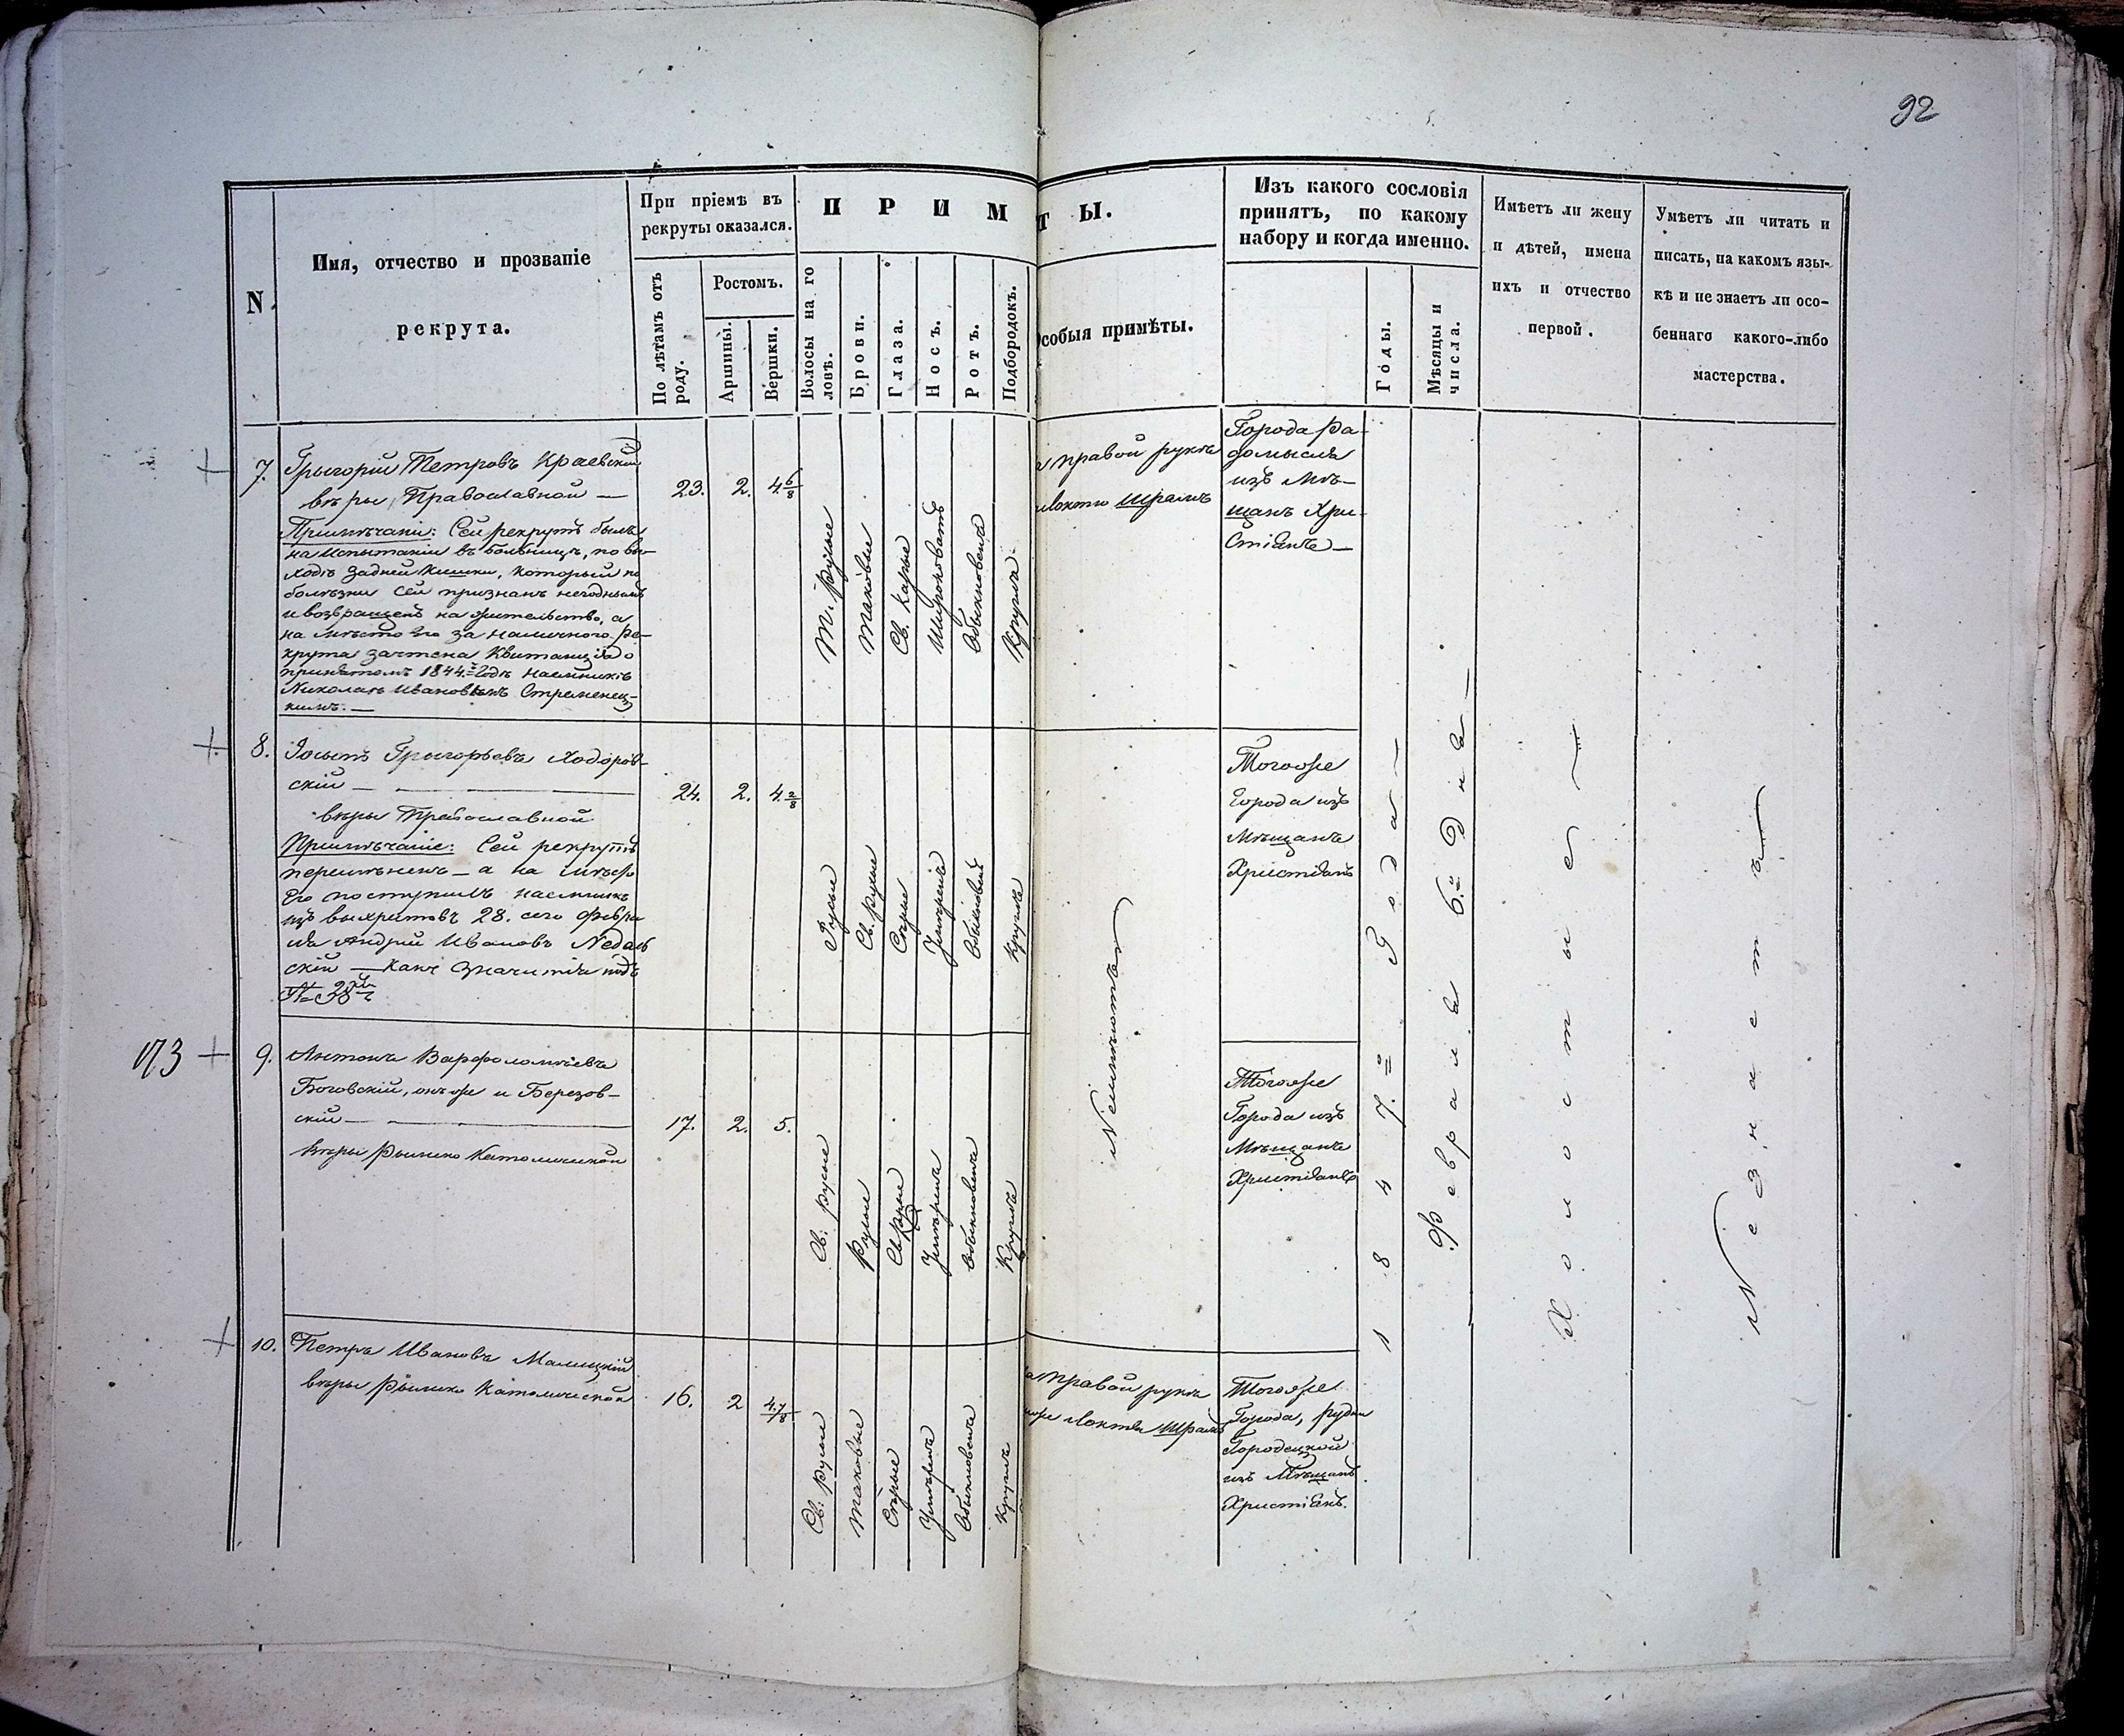 92
N.
Имя, отчество и прозваніе
рекрута.
При пріемѣ въ
рекруты оказался.
По лѣтамъ отъ
роду.
Ростомъ.
Аршины.
Вершки.
П Р И М
Т Ы.
Волосы на го
ловѣ.
Брови.
Глаза.
Носъ.
Ротъ.
Подбородокъ.
Особыя примѣты.
Изъ какого сословія
принятъ, по какому
набору и когда именно.
Гóды.
Мѣсяцы и
числа.
Имѣетъ ли жену
и дѣтей, имена
ихъ и отчество
первой.
Умѣетъ ли читать и
писать, на какомъ язы-
кѣ и не знаетъ ли осо-
беннаго какого-либо
мастерства.
7.
Григорій Петровъ Краевскій
вѣры Православной —
Примѣчаніе: Сей рекрутъ былъ
на испытаніи въ больницѣ, по вы-
ходѣ задней кишки, который по
болѣзни сей признанъ негоднымъ
и возвращенъ на жительство, а
на мѣсто его за наличного ре-
крута зачтена Квитанція о
принятомъ 1844.го Годѣ наемникѣ
Николаѣ Ивановѣ Стременец-
кимъ. —
23.
2.
4 6/8
Т. Русые
таковые
Св. Карые
Широковатъ
Обыкновенъ
Круглъ
правой рукѣ
локтю шрамъ
Города Ра-
домысля
изъ Мѣ-
щанъ Хри-
стіанъ —
8.
Іосипъ Григорьевъ Ходоров-
скій —
вѣры Православной
Примѣчаніе: Сей рекрутъ
перемѣненъ — а на мѣсто
Его поступилъ наемникъ
изъ выкрестовъ 28. сего Февра
ля Андрій Ивановъ
скій — какъ значится подъ
№ 38
24.
2.
4 2/8
Русые
Св. Русые
Сѣрые
Умѣренъ
Обыкновенъ
Круглъ
Неимѣетъ
Тогоже
Города изъ
Мѣщанъ
Христіанъ
173
9.
Антонъ Варфоломѣевъ
Боговскій, онъ же и Березов-
скій —
вѣры Римско Католической
17.
2.
5.
Св: русые
Русые
Умѣренъ
Обыкновенъ
Круглъ
Тогоже
Города изъ
Мѣщанъ
Христіанъ
10.
Петръ Ивановъ Малицкій
вѣры Римско Католической
16.
2
4 7/8
Св: русые
таковые
Сѣрые
Умѣренъ
Обыкновенъ
Круглъ
правой рукѣ
локтя Шрамъ
Тогоже
Города, рудни
Городецкой
изъ Мѣщанъ
Христіанъ.
1847.го Года —
Февраля 6.го Дня —
Холостые —
Незнаетъ